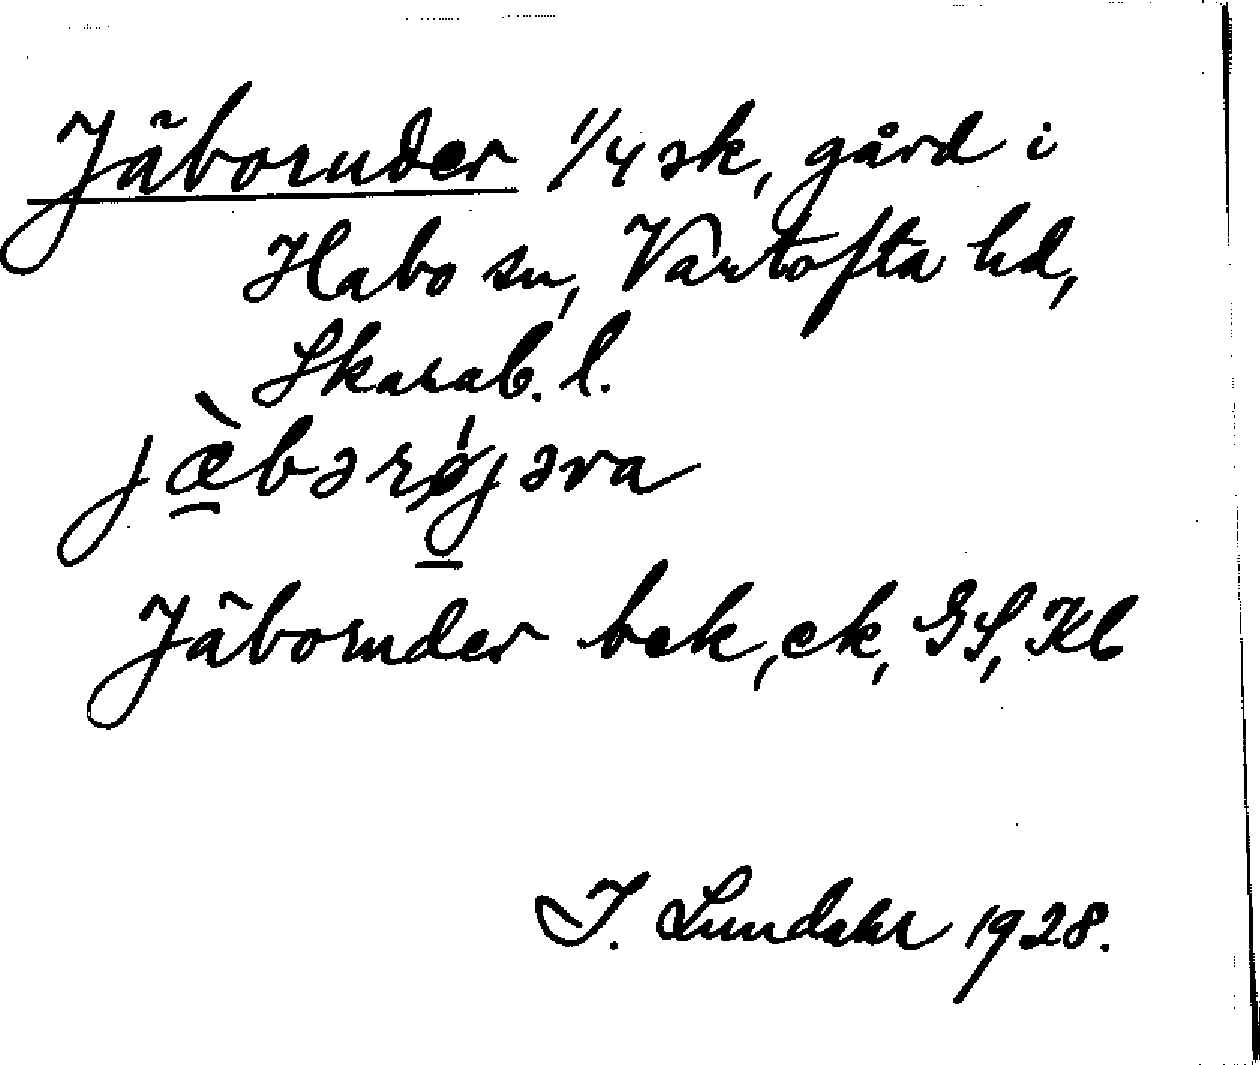 Jäboruder 1/4 sk, gård i
Habo sn, Vartofta hd,
Skarab. l.
jæ̀bərǿjəra
Jäboruder bek, ek, GS, Kb
I. Lundahl 1928.